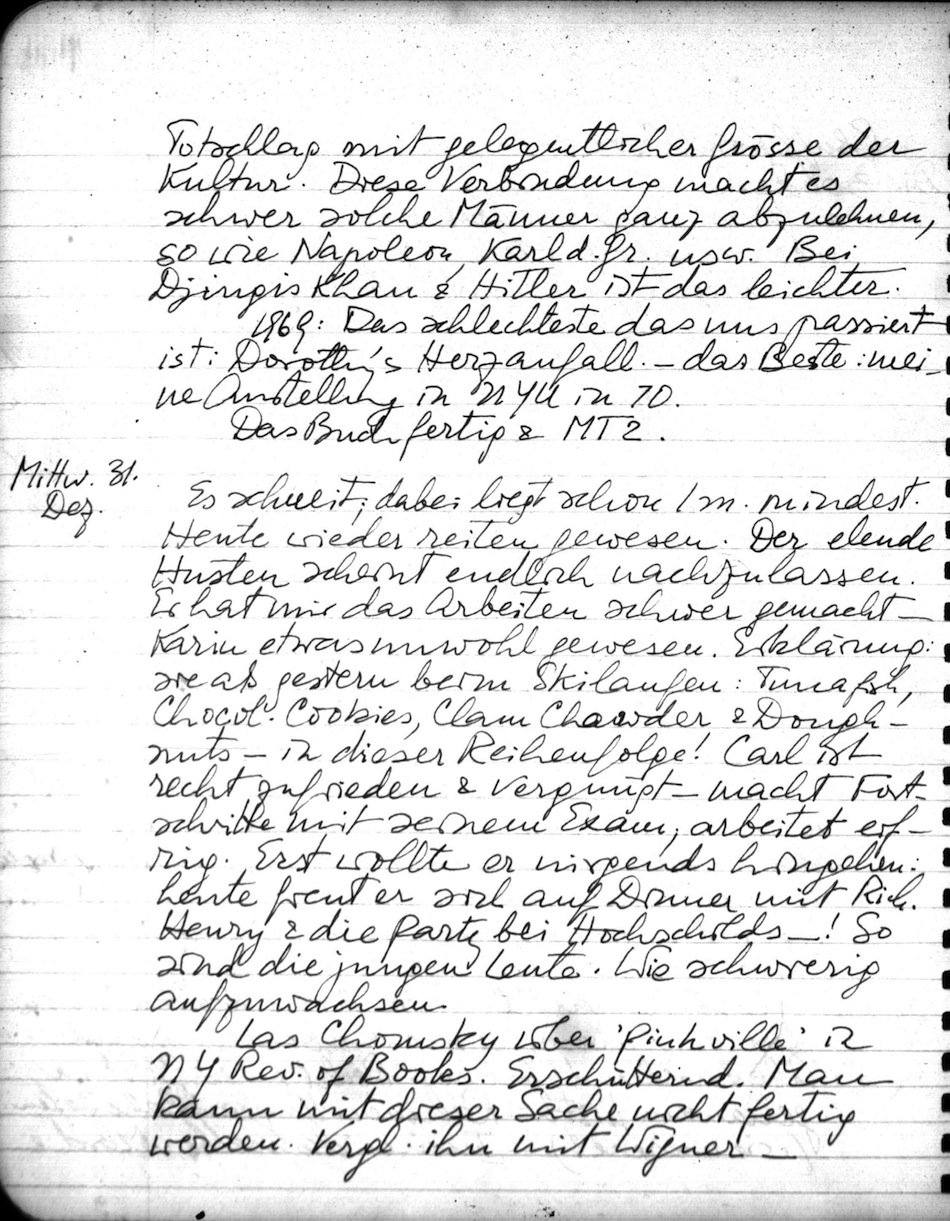 Totschlag mit gelegentlicher Grösse der
Kultur. Diese Verbindung macht es
schwer solche Männer ganz abzulehnen,
so wie Napoleon, Karl d. Gr. usw. Bei
Djingis Khan & Hitler ist das leichter.
1969: Das schlechteste das uns passiert
ist: Dorothy's Herzanfall. – das Beste: mei-
ne Anstellung in NYU in 70.
Das Buch fertig & MT2.
Mittw. 31.
Dez.
Es schneit; dabei liegt schon 1 m. mindest.
Heute wieder reiten gewesen. Der elende
Husten scheint endlich nachzulassen.
Er hat mir das Arbeiten schwer gemacht –
Karin etwas unwohl gewesen. Erklärung:
sie aß gestern beim Skilaufen: Tunafish,
Chocol. Cookies, Clam Chowder & Dough-
nuts – in dieser Reihenfolge! Carl ist
recht zufrieden & vergnügt – macht Fort-
schritte mit seinem Exam, arbeitet eif-
rig. Erst wollte er nirgends hingehen:
heute freut er sich auf Dinner mit Rich.
Henry & die Party bei Hochschilds –! So
sind die jungen Leute. Wie schwierig
aufzuwachsen
Las Chomsky über 'Pinkville' in
NY Rev. of Books. Erschütternd. Man
kann mit dieser Sache nicht fertig
werden. Vergl. ihn mit Wigner –